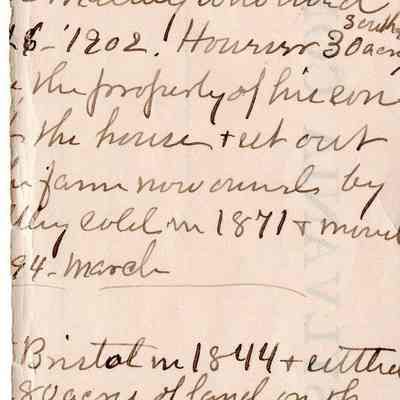 6-1902. However 30 acres
the property of his son
the house + set out
farm now owned by
they sold in 1871 + moved
94- March
Bristol in 1844 + settled
80 acres of land on th